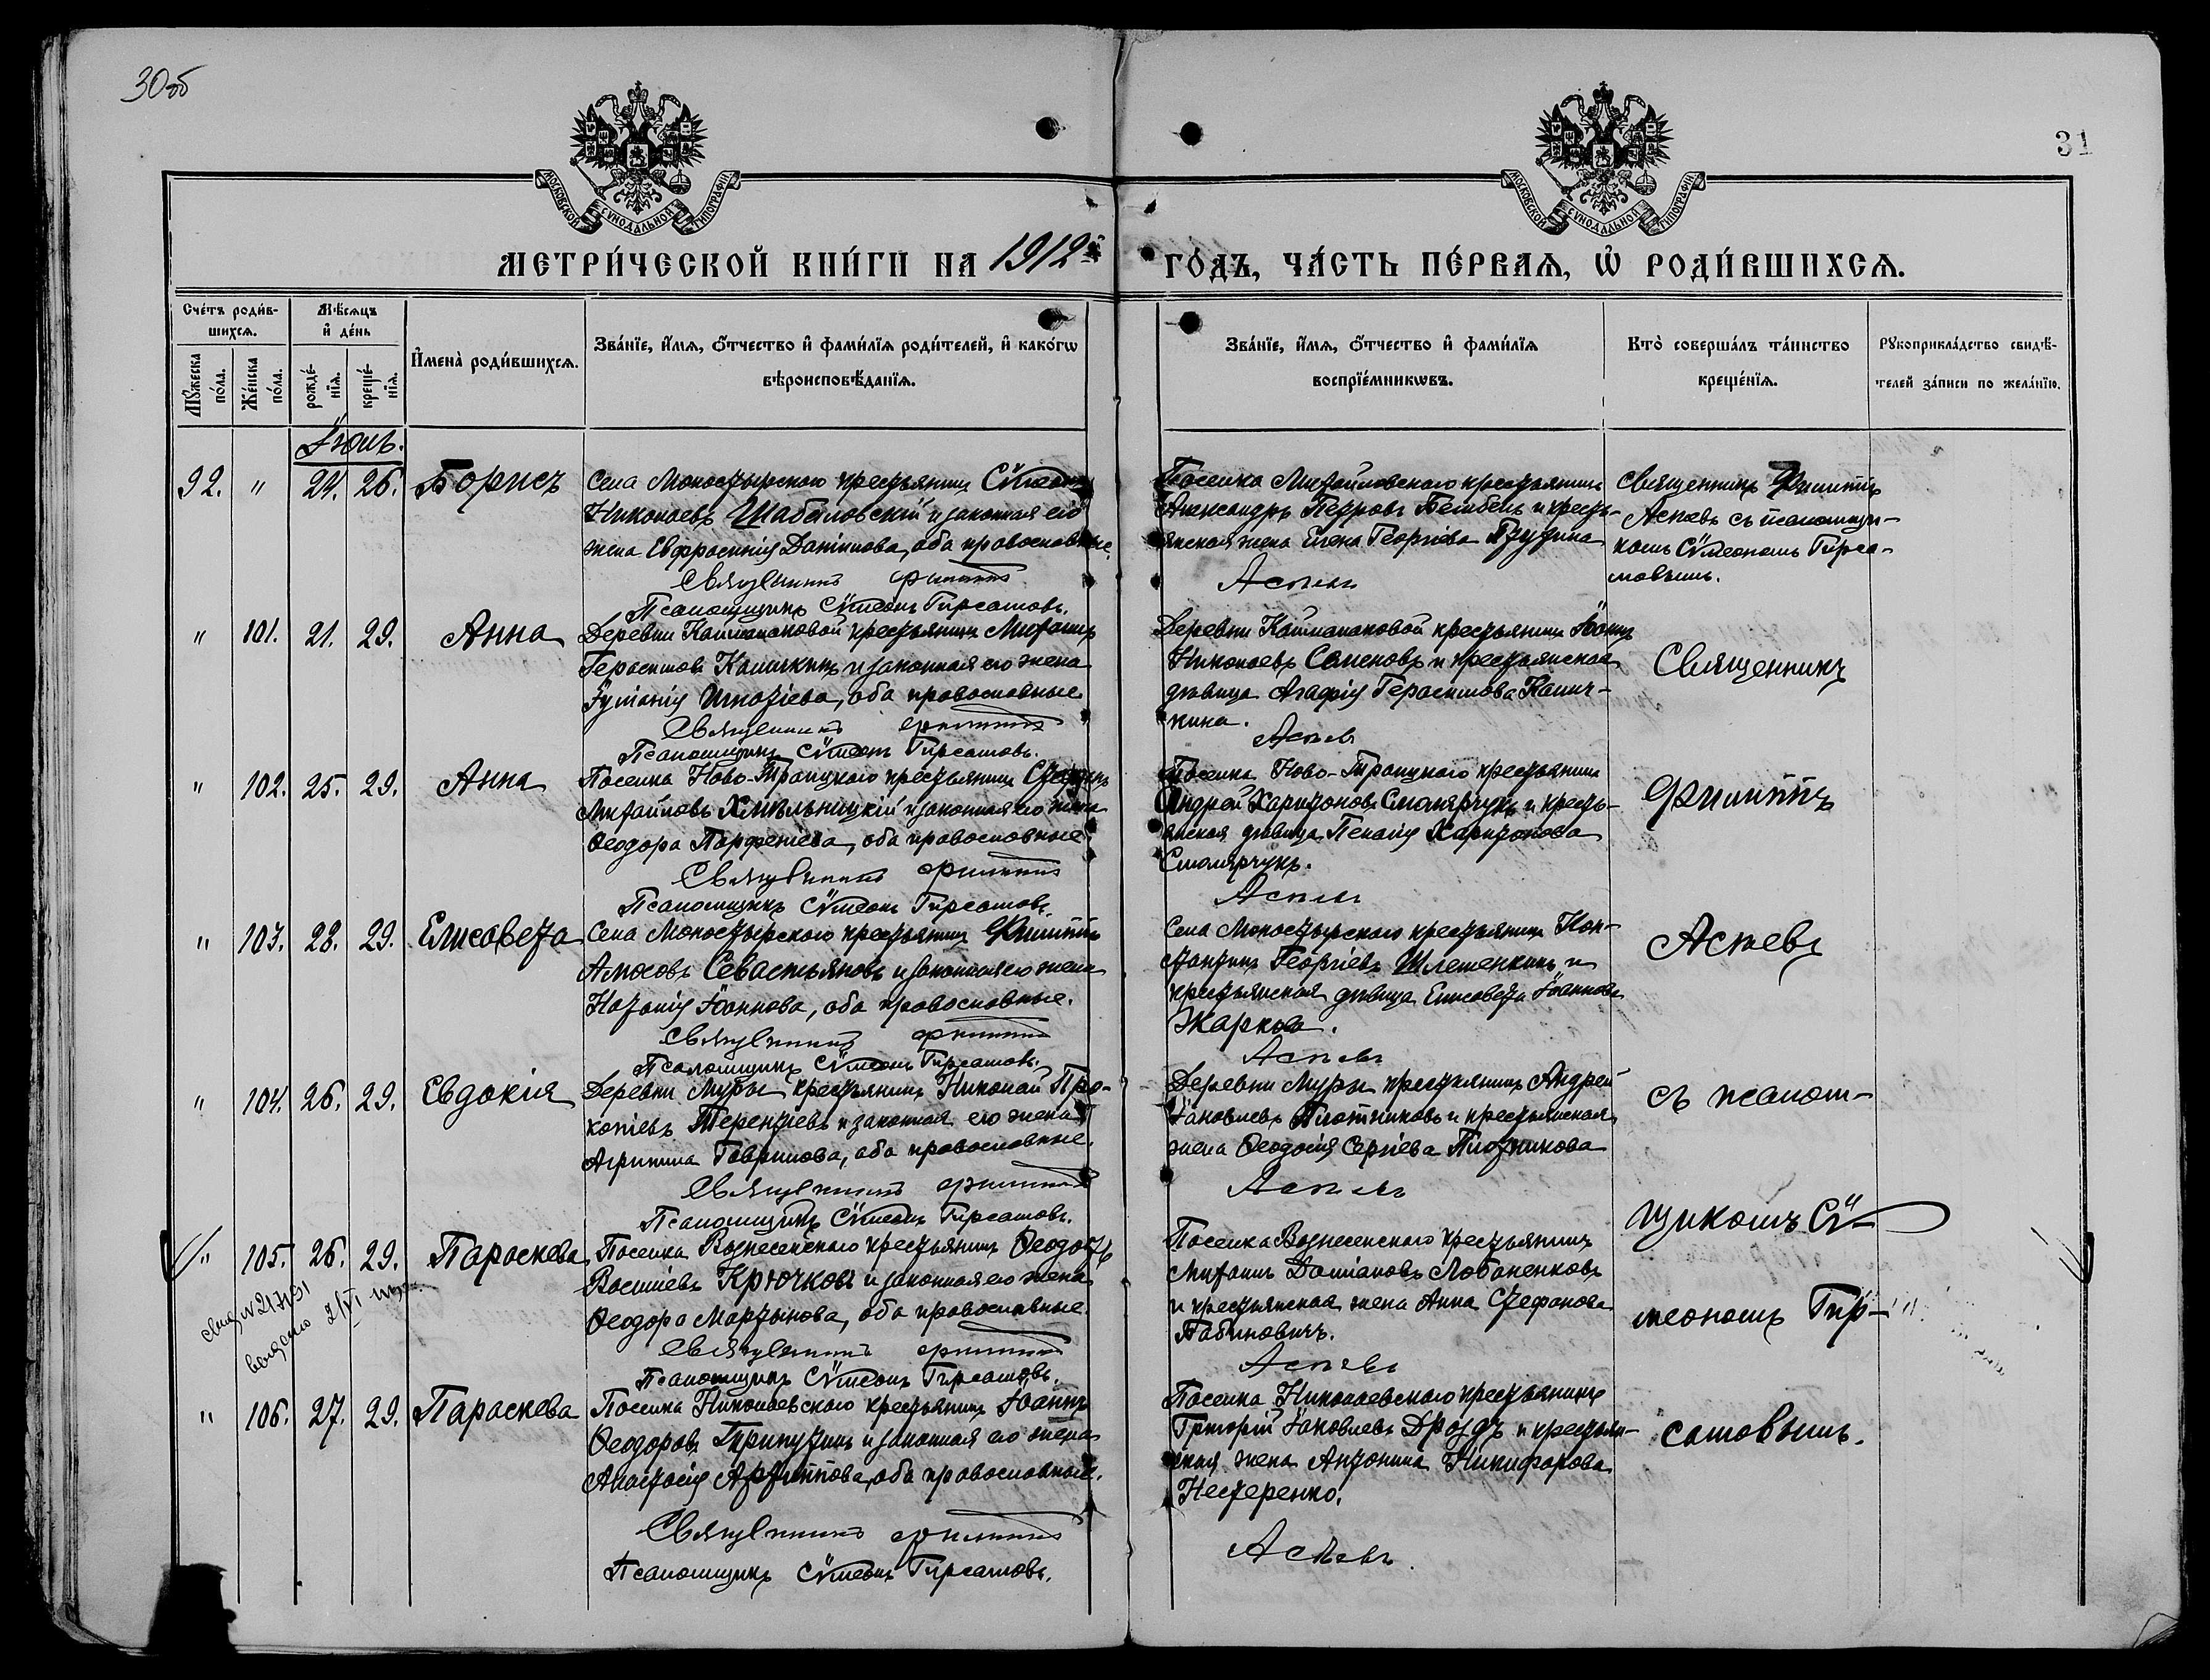 30об
31
МОСКОВСКОЙ СѴНОДАЛЬНОЙ ТИПОГРАФІИ
МОСКОВСКОЙ СѴНОДАЛЬНОЙ ТИПОГРАФІИ
МЕТРИ́ЧЕСКОЙ КНИ́ГИ НА 1912й ГО́ДЪ, ЧА́СТЬ ПЕ́РВАѦ, Ѡ҆ РОДИ́ВШИХСѦ.
Сче́тъ роди́в-
шихсѧ.
Мꙋ́жеска по́ла.
Же́нска по́ла.
Мѣ́сѧцъ
и҆ де́нь
рожде́-
нїѧ.
креще́-
нїѧ.
И҆мена̀ роди́вшихсѧ.
Зва́нїе, и҆́мѧ, ѻ҆́тчество и҆ фами́лїѧ роди́телей, и҆ како́гѡ
вѣроисповѣ́данїѧ.
Зва́нїе, и҆́мѧ, ѻ҆́тчество и҆ фами́лїѧ
воспрїе́мникѡвъ.
Кто̀ соверша́лъ та́инство
креще́нїѧ.
Рꙋкоприкла́дство свидѣ́-
телей за́писи по жела́нїю.
Іюль.
92. " 24. 26. Борисъ
Села Монастырского крестьянинъ Сѵмеонъ
Николаевъ Шабаловскій и законная его
жена Евфросинія Даніилова, оба православные.
Священникъ Филиппъ Аспевъ
Псаломщикъ Сѵмеонъ Гирсамовъ.
Поселка Михайловского крестьянинъ
Александръ Петровъ и кресть-
янская жена Елена Георгіева
Священникъ Филиппъ
Аспевъ съ псаломщи-
комъ Сѵмеономъ Гирса-
мовымъ.
" 101. 21. 29. Анна
Деревни Кайманаковой крестьянинъ Михаилъ
Герасимовъ Калинкинъ и законная его жена
Іуліанія Игнатіева, оба православные
Священникъ Филиппъ Аспевъ
Псаломщикъ Сѵмеонъ Гирсамовъ.
Деревни Кайманаковой крестьянинъ Іоаннъ
Николаевъ Семеновъ и крестьянская
дѣвица Агафія Герасимова Калин-
кина.
Священникъ
" 102. 25. 29. Анна
Поселка Ново-Троицкого крестьянинъ Стефанъ
Михайловъ Хмѣльницкій и законная его жена
Ѳеодора Парфеніева, оба православные
Священникъ Филиппъ Аспевъ
Псаломщикъ Сѵмеонъ Гирсамовъ.
Поселка Ново-Троицкого крестьянинъ
Андрей Харитоновъ Смолярчукъ и кресть-
янская дѣвица Пелагія Харитонова
Смолярчукъ.
Филиппъ
" 103. 28. 29. Елисавета
Села Монастырского крестьянинъ Филиппъ
Амосовъ Севастьяновъ и законная его жена
Наталія Іоаннова, оба православные.
Священникъ Филиппъ Аспевъ
Псаломщикъ Сѵмеонъ Гирсамовъ.
Села Монастырского крестьянинъ Кон-
стантинъ Георгіевъ Шлетенкинъ и
крестьянская дѣвица Елисавета Іоаннова
Жаркова.
Аспевъ
" 104. 26. 29. Евдокія
Деревни Муры крестьянинъ Николай Про-
копіевъ Терентіевъ и законная его жена
Агрипина Гаврилова, оба православные.
Священникъ Филиппъ Аспевъ
Псаломщикъ Сѵмеонъ Гирсамовъ.
Деревни Муры крестьянинъ Андрей
Іаковлевъ Плотниковъ и крестьянская
жена Ѳеодосія Сергіева Плотникова
съ псалом-
щикомъ Сѵ-
" 105. 26. 29. Параскева
Поселка Вознесенского крестьянинъ Ѳеодотъ
Василіевъ Крючковъ и законная его жена
Ѳеодора Мартынова, оба православные.
Священникъ Филиппъ Аспевъ
Псаломщикъ Сѵмеонъ Гирсамовъ.
Поселка Вознесенского крестьянинъ
Михаилъ Даміановъ Лобаненковъ
и крестьянская жена Анна Стефанова
Бабиновичъ.
меономъ Гир-
выдано
" 106. 27. 29. Параскева
Поселка Николаевского крестьянинъ Іоаннъ
Ѳеодоровъ Трипутинъ и законная его жена
Анастасія Архиппова, оба православные.
Священникъ Филиппъ Аспевъ
Псаломщикъ Сѵмеонъ Гирсамовъ.
Поселка Николаевского крестьянинъ
Григорій Іаковлевъ Дроздъ и крестьян-
ская жена Антонина Никифорова
Нестеренко.
самовымъ.